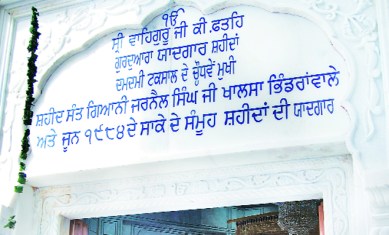 ੴ
ਸ੍ਰੀ ਵਾਹਿਗੁਰੂ ਜੀ ਕੀ ਫਤਹਿ
ਗੁਰਦੁਆਰਾ ਯਾਦਗਾਰ ਸ਼ਹੀਦਾਂ
ਦਮਦਮੀ ਟਕਸਾਲ ਦੇ ਚੌਧਵੇਂ ਮੁਖੀ
ਸ਼ਹੀਦ ਸੰਤ ਗਿਆਨੀ ਜਰਨੈਲ ਸਿੰਘ ਜੀ ਖਾਲਸਾ ਭਿੰਡਰਾਂਵਾਲੇ
ਅਤੇ ਜੂਨ ੧੯੮੪ ਦੇ ਸਾਕੇ ਦੇ ਸੰਮੂਹ ਸ਼ਹੀਦਾਂ ਦੀ ਯਾਦਗਾਰ